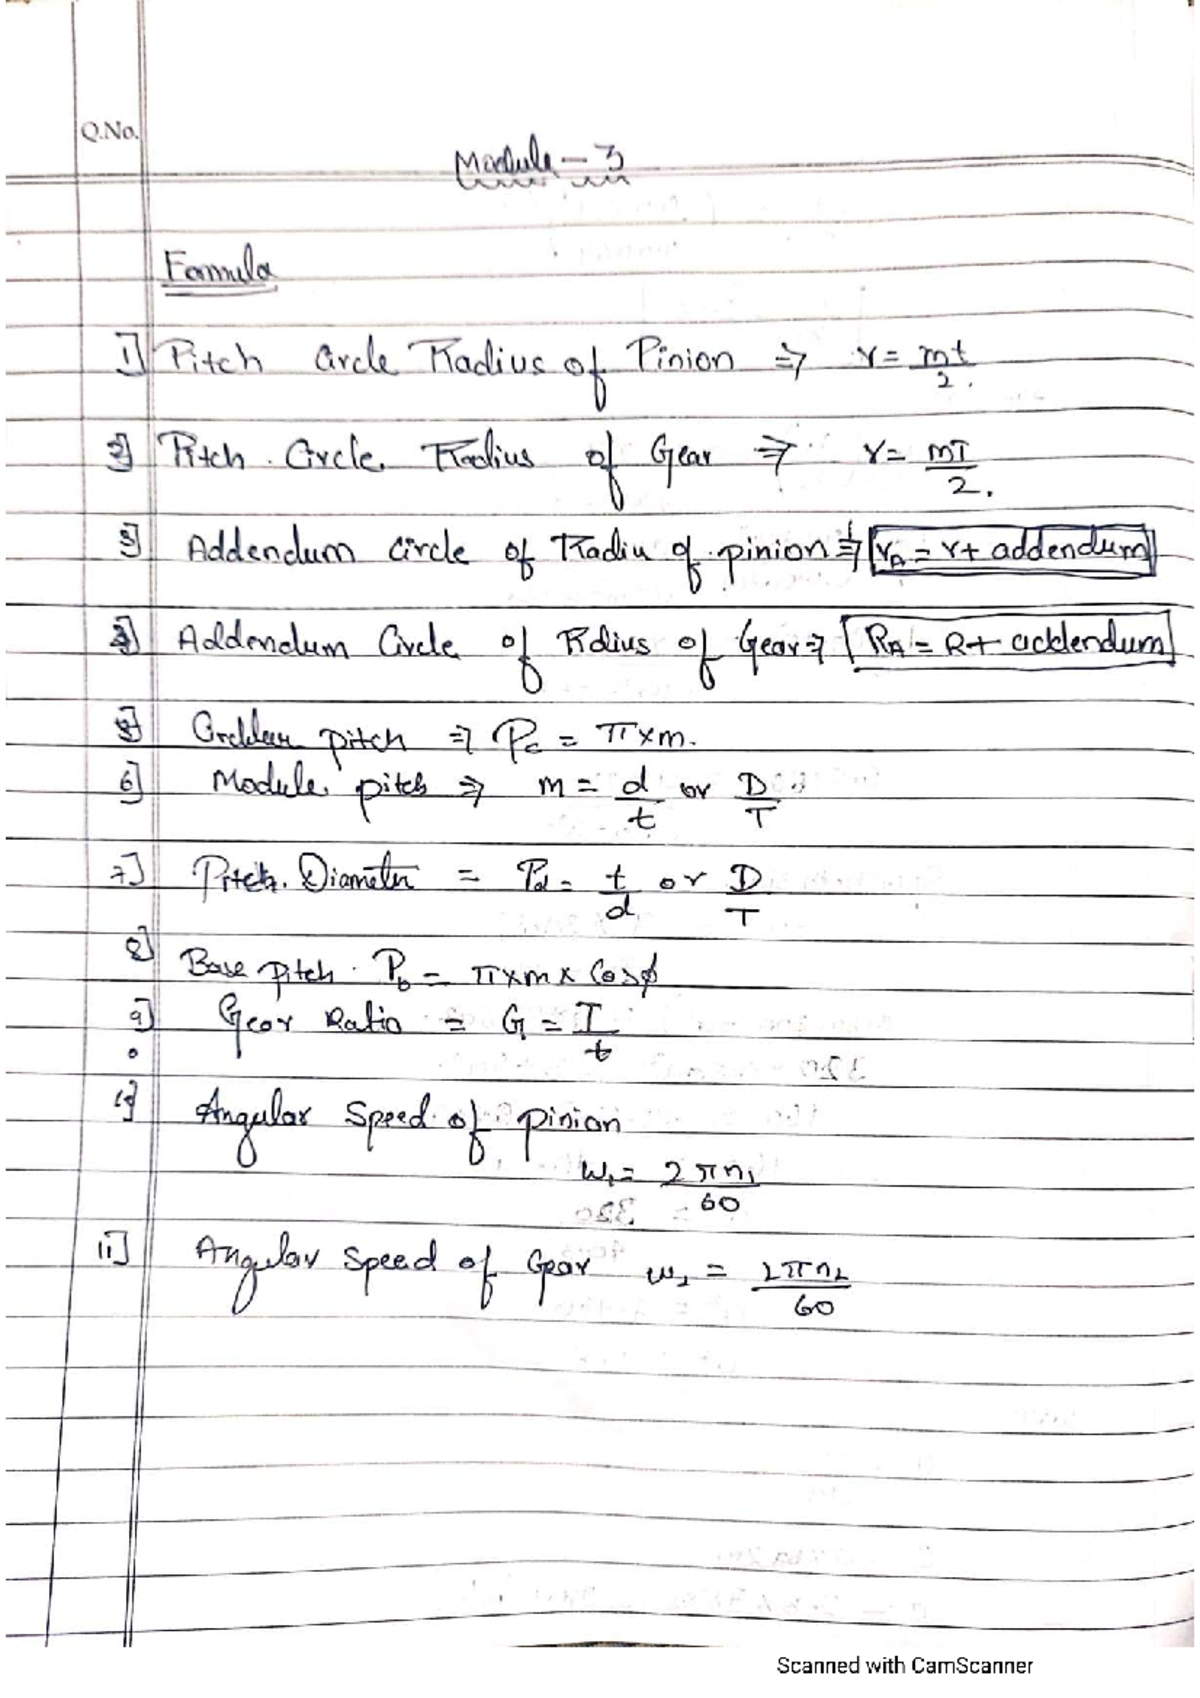 Q.No.
Module - 3
Formula
1] Pitch Circle Radius of Pinion ⇒ r = mt/2.
2] Pitch Circle Radius of Gear ⇒ r = mT/2.
3] Addendum circle of Radiu of pinion ⇒ rA = r + addendum
4] Addendum Circle of Rdius of Gear ⇒ RA = R + addendum
5] Circular pitch ⇒ Pc = π×m.
6] Module pitch ⇒ m = d/t or D/T
7] Pitch. Diameter = Pd = t/d or D/T
8] Base pitch. Pb = π×m×Cosϕ
9] Gear Ratio = G = T/t
10] Angular Speed of pinion
ω1 = 2πn1/60
11] Angular Speed of Gear ω2 = 2πn2/60
Scanned with CamScanner